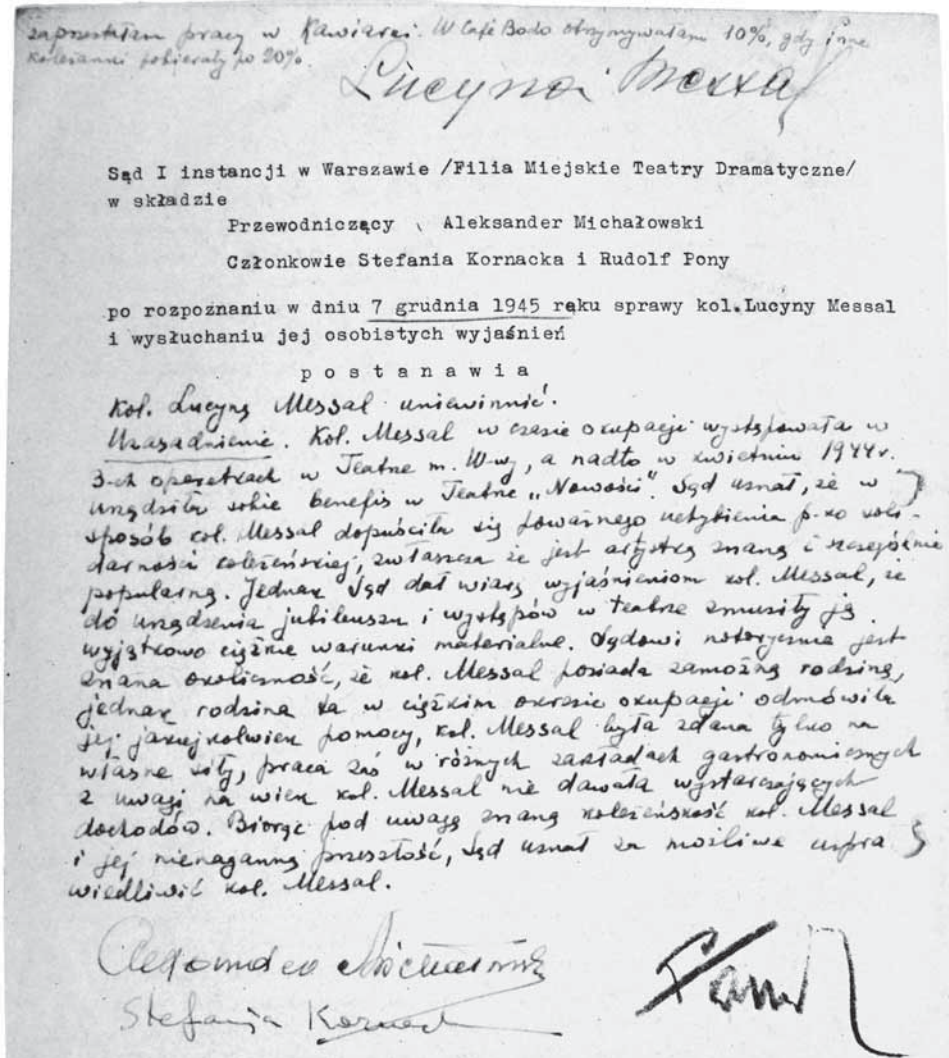 zaprzestałam pracy w Kawiarni. W Café Bodo otrzymywałam 10%, gdy inne
koleżanki pobierały po 20%.
Lucyna Messal
Sąd I instancji w Warszawie /Filia Miejskie Teatry Dramatyczne/
w składzie
Przewodniczący Aleksander Michałowski
Członkowie Stefania Kornacka i Rudolf Pony
po rozpoznaniu w dniu 7 grudnia 1945 ręku sprawy kol.Lucyny Messal
i wysłuchaniu jej osobistych wyjaśnień
p o s t a n a w i a
Kol. Lucynę Messal uniewinnić.
Uzasadnienie. Kol. Messal w czasie okupacji występowała w
3-ch operetkach w Teatrze m. W-wy, a nadto w kwietniu 1944 r.
urządziła sobie benefis w Teatrze „Nowości". Sąd uznał, że w
sposób kol. Messal dopuściła się poważnego uchybienia p-ko soli-
darności koleżeńskiej, zwłaszcza że jest artystką znaną i szczególnie
popularną. Jednak Sąd dał wiarę wyjaśnieniom kol. Messal, że
do urządzenia jubileuszu i występów w teatrze zmusiły ją
wyjątkowo ciężkie warunki materialne. Sądowi notorycznie jest
znana okoliczność, że kol. Messal posiada zamożną rodzinę,
jednak rodzina ta w ciężkim okresie okupacji odmówiła
jej jakiejkolwiek pomocy, kol. Messal była zdana tylko na
własne siły, praca zaś w różnych zakładach gastronomicznych
z uwagi na wiek kol. Messal nie dawała wystarczających
dochodów. Biorąc pod uwagę znaną koleżeńskość kol. Messal
i jej nienaganną przeszłość, Sąd uznał za możliwe uspra
wiedliwić kol. Messal.
Aleksander Michałowski
Stefania Kornacka